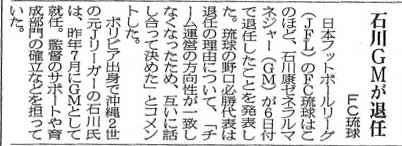 石川GMが退任
FC琉球
日本フットボールリーグ
（JFL）のFC琉球はこ
のほど、石川康ゼネラルマ
ネジャー（GM）が6日付
で退任したことを発表し
た。琉球の野口必勝代表は
退任の理由について、「チ
ーム運営の方向性が一致し
なくなったため、互いに話
し合って決めた」とコメン
トした。
ボリビア出身で沖縄2世
の元Jリーガーの石川氏
は、昨年7月にGMとして
就任。監督のサポートや育
成部門の確立などを担って
いた。